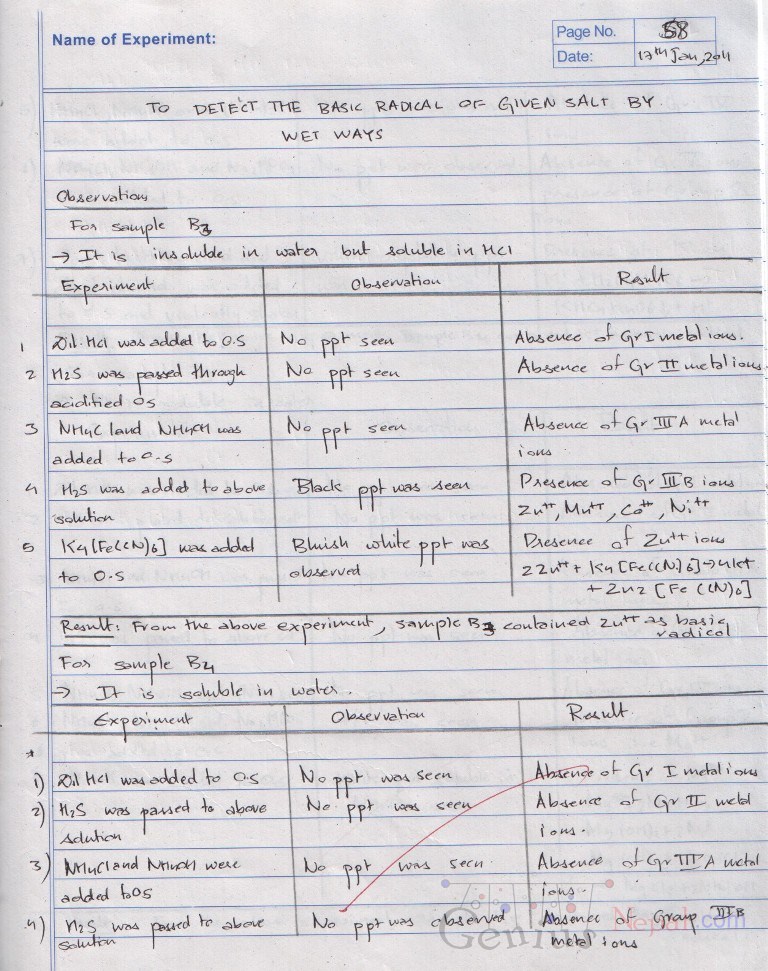 Name of Experiment:
Page No. 58
Date: 17th Jan, 2011
TO DETECT THE BASIC RADICAL OF GIVEN SALT BY
WET WAYS
Observation
For sample B3
→ It is insoluble in water but soluble in HCl
Experiment Observation Result
1 Dil. HCl was added to O.S No ppt seen Absence of Gr I metal ions.
2 H2S was passed through No ppt seen Absence of Gr II metal ions
acidified OS
3 NH4Cl and NH4OH was No ppt seen Absence of Gr III A metal
added to O.S ions.
4 H2S was added to above Black ppt was seen Presence of Gr III B ions
solution Zn++, Mn++, Co++, Ni++
5 K4[Fe(CN)6] was added Bluish white ppt was Presence of Zn++ ions
to O.S observed 2Zn++ + K4[Fe(CN)6] → 4K+
+ Zn2[Fe(CN)6]
Result: From the above experiment, sample B3 contained Zn++ as basic
radicol
For sample B4
→ It is soluble in water.
Experiment Observation Result.
*
1) Dil HCl was added to O.S No ppt was seen Absence of Gr I metal ions
2) H2S was passed to above No ppt was seen Absence of Gr II metal
solution ions.
3) NH4Cl and NH4OH were No ppt was seen. Absence of Gr III A metal
added to OS ions.
4) H2S was passed to above No ppt was observed Absence of Group III B
solution metal ions
Genius Nepal.com